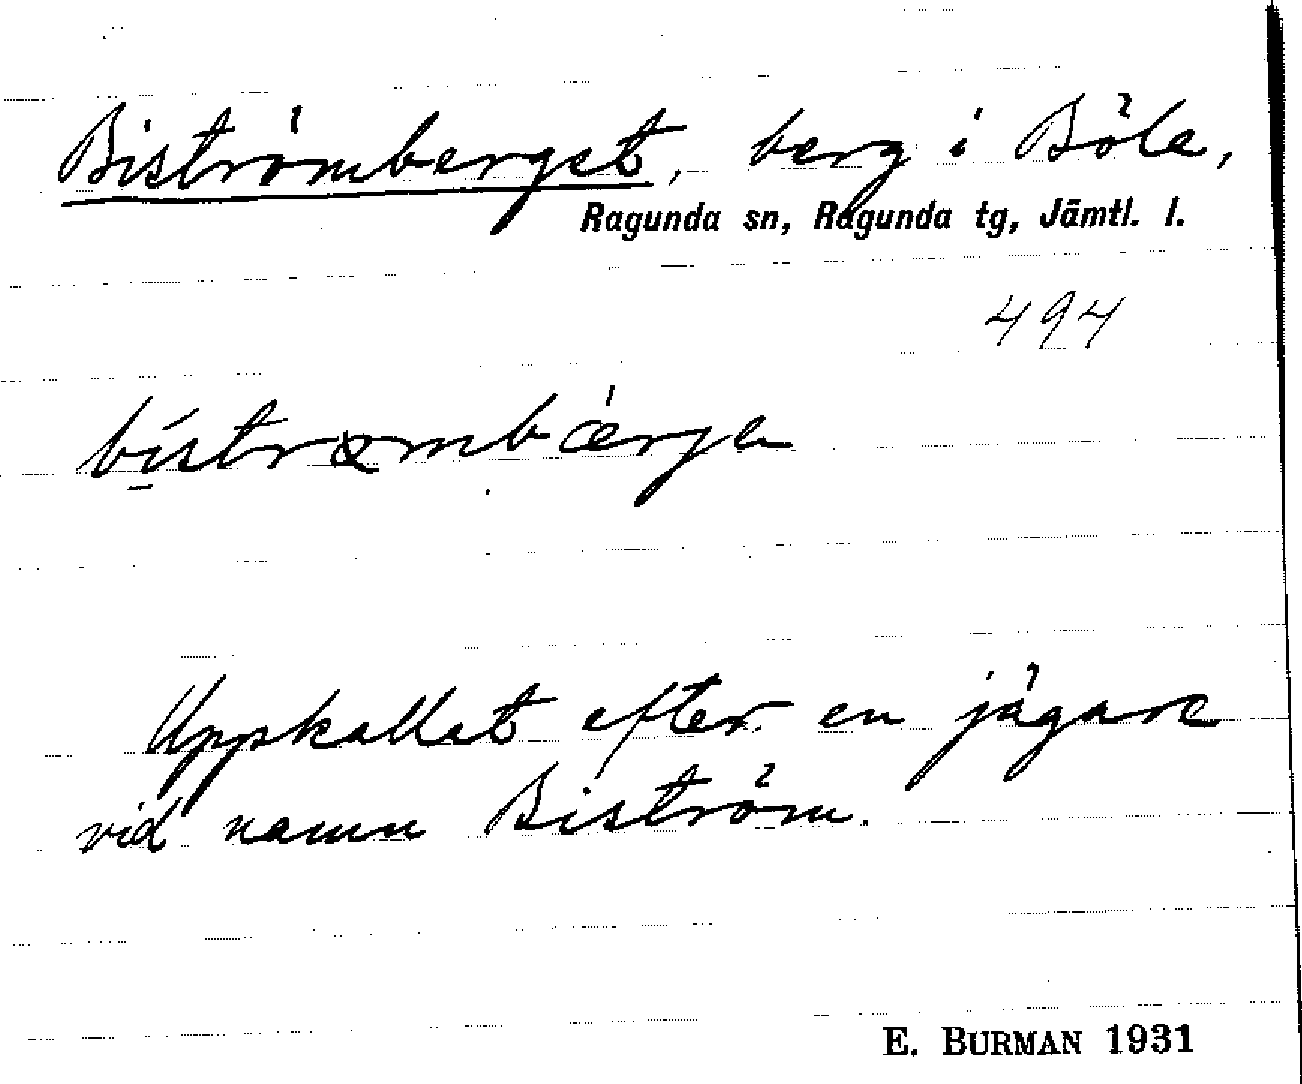 Biströmberget, berg i Böle,
Ragunda sn, Ragunda tg, Jämtl. l.
494
Uppkallat efter en jägare
vid namn Biström.
E. BURMAN 1931